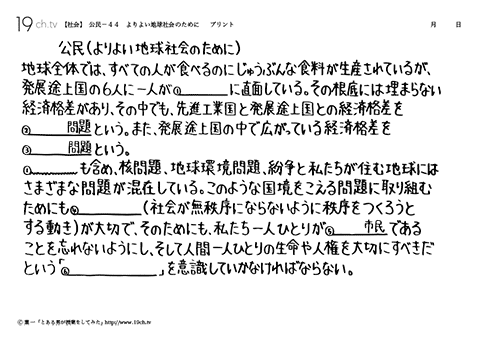 19ch.tv 【社会】 公民－44 よりよい地球社会のために プリント 月 日
公民(よりよい地球社会のために)
地球全体では、すべての人が食べるのにじゅうぶんな食料が生産されているが、
発展途上国の6人に一人が①________に直面している。その根底には埋まらない
経済格差があり、その中でも、先進工業国と発展途上国との経済格差を
②____問題という。また、発展途上国の中で広がっている経済格差を
③____問題という。
①________も含め、核問題、地球環境問題、紛争と私たちが住む地球には
さまざまな問題が混在している。このような国境をこえる問題に取り組む
ためにも④________(社会が無秩序にならないように秩序をつくろうと
する動き)が大切で、そのためにも、私たち一人ひとりが⑤____市民である
ことを忘れないようにし、そして人間一人ひとりの生命や人権を大切にすべきだ
という「⑥____________」を意識していかなければならない。
© 葉一「とある男が授業をしてみた」http://www.19ch.tv